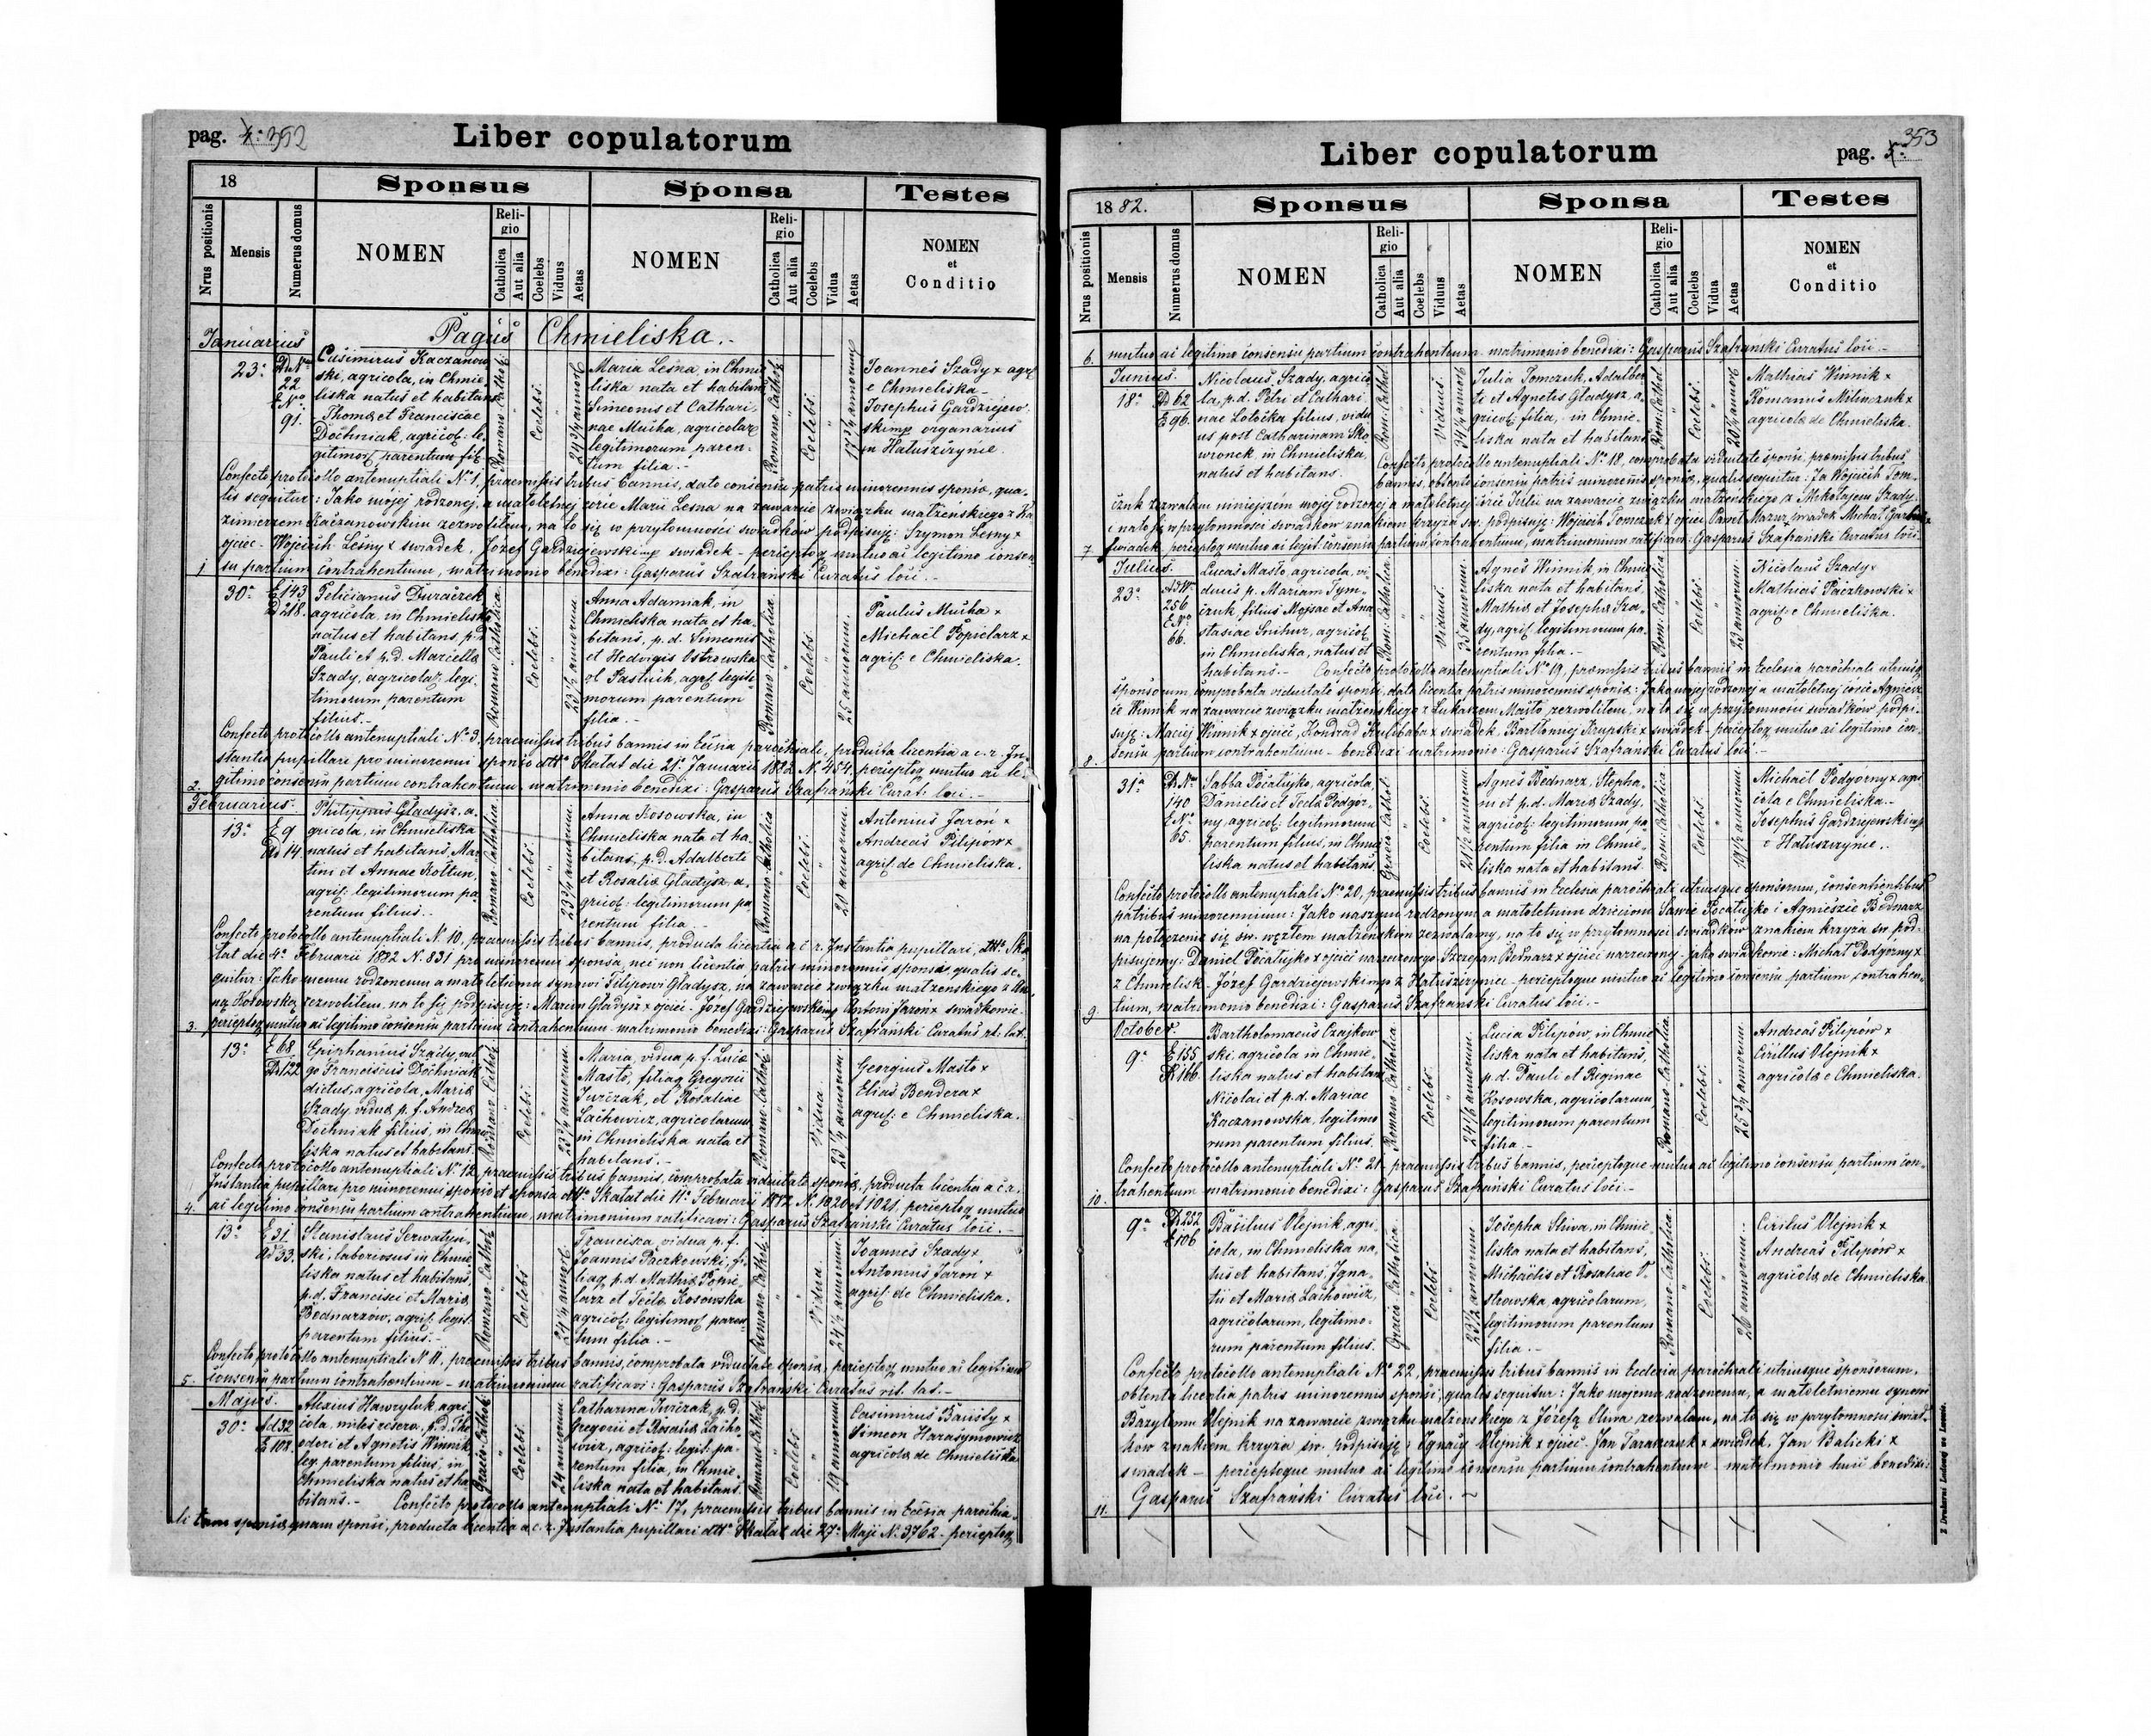 pag. 4. 352
Liber copulatorum
18
Sponsus
Sponsa
Testes
Nrus positionis
Mensis
Numerus domus
NOMEN
Religio
Catholica
Aut alia
Coelebs
Viduus
Aetas
NOMEN
Religio
Catholica
Aut alia
Coelebs
Vidua
Aetas
NOMEN
et
Conditio
Januarius
Pagus Chmieliska.-
23a
Ad No
22
E No
91.
Casimirus Kaczanow
ski, agricola, in Chmie
liska natus et habitans
Thomae et Franciscae
Dochniak, agricol. le
gitimor. parentum fil.
Romano Cathol.
"
Coelebs.
"
24 3/4 annor.
Maria Leśna, in Chmie
liska nata et habitans
Simeonis et Cathari,
nae Mucha, agricolar.
legitimorum paren-
tum filia.-
Romano Cathol.
"
Coelebs.
"
17 3/4 annorum
Joannes Szady x agr.
e Chmieliska -
Josephus Gardziejew.
ski mp organarius
in Hałuszczynie.
Confecto protocollo antenuptiali No 1, praemissis tribus bannis, dato consensu patris minorennis sponsae, qua-
lis sequitur: Jako mojej rodzonej, a małoletniej córce Marii Leśna na zawarcie związku małżeńskiego z Ka
zimierzem Kaczanowskim zezwoliłem, na to się w przytomności świadków podpisuję: Szymon Leśny x
ojciec - Wojciech Leśny x świadek, Józef Gardziejewski mp świadek - perceptoq. mutuo ac legitimo consen-
1
su partium contrahentium, matrimonio benedixi: Gasparus Szafrański Curatus loci.-
30a
E 143
Ad 218.
Felicianus Duraczek
agricola, in Chmieliska
natus et habitans, p.d.
Pauli et p.d. Mariellae
Szady, agricolar. legi
timorum parentum
filius.-
Romano Catholica.
"
Coelebs.
"
23 1/2 annorum
Anna Adamiak, in
Chmieliska nata et ha-
bitans, p. d. Simeonis
et Hedvigis Ostrowska
vel Pastuch, agr. legiti
morum parentum
filia.-
Romano Catholica.
"
Coelebs.
"
25 annorum.
Paulus Mucha x
Michaël Popielarz x
agric. e Chmieliska.
Confecto protocollo antenuptiali No 3, praemissis tribus bannis in Ecclsia parochiali, producta licentia a c. r. In-
stantia pupillari pro minorenni sponso dtto Skałat die 21a Januarii 1882 N. 454, perceptoq. mutuo ac le-
2.
gitimo consensu partium contrahentium, matrimonio benedixi: Gasparus Szafrański Curat. loci.-
Februarius.
13a
E 9
Ad 14.
Philippus Gładysz, a.
gricola, in Chmieliska
natus et habitans, Mar
tini et Annae Kottun,
agric. legitimorum pa
rentum filius.-
Romano Catholica
"
Coelebs.
"
23 3/4 annorum.
Anna Kosowska, in
Chmieliska nata et ha.
bitans, p.d. Adalberti
et Rosaliae Gładysz, a.
gricol. legitimorum pa
rentum filia.-
Romano Catholica
"
Coelebs.
"
20 annorum.
Antonius Jaroń x
Andreas Pilipów x
agric. de Chmieliska.
Confecto protocollo antenuptiali N. 10, praemissis tribus bannis, producta licentia a c. r. Instantia pupillari, dtto Ska
łat die 4a Februarii 1882 N. 831 pro minorenni sponsa, nec non licentia patris minorennis sponsi, qualis se-
quitur: Jako memu rodzonemu a małoletniemu synowi Filipowi Gładysz, na zawarcie związku małżeńskiego z An.
ną Kosowską zezwoliłem, na to się podpisuję: Marcin Gładysz x ojciec. Józef Gardziejewski mp Antoni Jaroń x świadkowie.
3.
perceptoq. mutuo ac legitimo consensu partium contrahentium matrimonio benedixi: Gasparus Szafrański Curatus rt: lat.
13a
E 68.
Ad 122
Epiphanius Szady, vul
go Franciscus Dochniak
dictus, agricola, Mariae
Szady viduae p. f. Andreae
Dochniak filius, in Chmie
liska natus et habitans.
Romano Cathol.
"
Coelebs.
"
23 1/4 annorum.
Maria, vidua p. f. Lucae
Masło, filiaq Gregorii
Jurczak, et Rosaliae
Lachowicz, agricolarum
in Chmieliska nata et
habitans.-
Romano-Cathol.
"
"
Vidua.
23 1/4 annorum
Georgius Masło x
Elias Bendera x
agric. e Chmieliska.
Confecto protocollo antenuptiali No 12, praemissis tribus bannis, comprobata viduitate sponsae, producta licentia a c. r.
Instantia pupillari pro minorenni sponso et sponsa dtto Skałat die 11a Februarii 1882 N. 1020 et 1021, perceptoq. mutuo
4.
ac legitimo consensu partium contrahentium, matrimonium ratificavi: Gasparus Szafrański Curatus loci.-
13a
E 31.
Ad 33.
Stanislaus Serwatyn.
ski, laboriosus in Chmie
liska natus et habitans,
p.d. Francisci et Mariae
Bednarzow, agric. legit.
parentum filius.-
Romano-Cathol.
"
Coelebs
"
24 1/4 annor.
Francisca, vidua p. f.
Joannis Paczkowski, fi-
liaq. p.d. Mathiae Popie
larz et Teclae Kosowska
agricol. legitimor. paren
tum filia.-
Romano-Cathol.
"
"
Vidua.
24 1/2 annorum
Joannes Szady x
Antonius Jaroń x
agric. de Chmieliska.
Confecto protocollo antenuptiali N 11, praemissis tribus bannis, comprobata viduitate sponsae, perceptoq. mutuo ac legitimo
5.
consensu partium contrahentium - matrimonium ratificavi: Gasparus Szafrański Curatus rit. lat.-
Majus.
30a
Ad 32
E 108.
Alexius Hawryluk agri
cola, miles reserv., p.d. The
odori et Agnetis Winnik
leg. parentum filius, in
Chmieliska natus et ha
bitans.-
Graeco-Cathol.
"
Coelebs.
"
24 annorum
Catharina Jurczak, p.d.
Gregorii et Rosaliae Lacho
wicz, agricol. legit. pa-
rentum filia, in Chmie.
liska nata et habitans.
Romano Cathol.
"
Coelebs
"
19 annorum
Casimirus Bausly x
Simeon Harasymowicz
agricolae de Chmieliska
Confecto protocollo antenuptiali N. 17, praemissis tribus bannis in Ecclsia parochia-
li tam sponsae quam sponsi, producta licentia a c. r. Instantia pupillari dtto Skałat die 27a Maji N. 3762 - perceptoq.
Liber copulatorum
pag. 5. 353
1882.
Sponsus
Sponsa
Testes
Nrus positionis
Mensis
Numerus domus
NOMEN
Religio
Catholica
Aut alia
Coelebs
Viduus
Aetas
NOMEN
Religio
Catholica
Aut alia
Coelebs
Vidua
Aetas
NOMEN
et
Conditio
6.
mutuo ac legitimo consensu partium contrahentium matrimonio benedixi: Gasparus Szafranski Curatus loci -
Junius.
18a
Ad 62
E 96.
Nicolaus Szady, agrico
la, p.d. Petri et Cathari.
nae Łotocka filius, vidu
us post Catharinam Sko
wronek, in Chmieliska,
natus et habitans.
Rom. Cathol
"
"
Viduus.
34 1/4 annor.
Julia Tomczuk, Adalber
ti et Agnetis Gładysz, a.
gricol. filia, in Chmie
liska nata et habitans
Rom. Cathol.
"
Coelebs.
"
20 1/2 annor.
Mathias Winnik x
Romanus Milinczuk x
agricolae de Chmieliska.
Confecto protocollo antenuptiali No 18, comprobata viduitate sponsi, praemissis tribus
bannis, obtento consensu patris minorennis sponsae, qualis sequitur: Ja Wojciech Tom-
czuk zezwalam niniejszem mojej rodzonej a małoletniej córce Julii na zawarcie związku małżeńskiego z Mikołajem Szady.
i na to się w przytomności świadków znakiem krzyża św. podpisuję: Wojciech Tomczuk x ojciec Paweł Mazur świadek Michał
7.
świadek, perceptoq mutuo ac legit. consensu partium contrahentium, matrimonium ratificavi: Gasparus Szafrański Curatus loci
Julius.
23a
Ad No
256
E No
66.
Lucas Masło, agricola, vi-
duus p. Mariam Tym-
czuk, filius Moysae et Ana
stasiae Snihur, agricol.
in Chmieliska, natus et
habitans.-
Rom. Catholica.
"
"
Viduus.
35 annorum.
Agnes Winnik, in Chmie
liska nata et habitans,
Mathiae et Josephae Sza-
dy, agric. legitimorum pa-
rentum filia.-
Rom. Catholica.
"
Coelebs.
"
23 annorum.
Nicolaus Szady x
Mathias Paczkowski x
agric. e Chmieliska.
Confecto protocollo antenuptiali No 19, praemissis tribus bannis in Ecclesia parochiali utriusq
sponsorum, comprobata viduitate sponsi, data licentia patris minorennis sponsae: Jako mojej rodzonej a małoletniej córce Agniesz
ce Winnik na zawarcie związku małżeńskiego z Łukaszem Masło zezwoliłem, na to się w przytomności świadków podpi-
suję: Maciej Winnik x ojciec, Konrad Kulibaba x świadek. Bartłomiej Krupski x świadek - perceptoq. mutuo ac legitimo con-
8.
sensu partium contrahentium - benedixi matrimonio: Gasparus Szafrański Curatus loci -
31a
Ad No
140
E No
65.
Sabba Pocałujko, agricola,
Danielis et Teclae Podgor
ny, agricol. legitimorum
parentum filius, in Chmie
liska natus et habitans.
Graeco Cathol.
"
Coelebs.
"
21 1/2 annorum
Agnes Bednarz, Stepha.
ni et p.d. Mariae Szady,
agricol. legitimorum pa-
rentum filia in Chmie.
liska nata et habitans.
Rom. Catholica
"
Coelebs.
"
19 1/2 annorum.
Michaël Podgórny x agri
cola e Chmieliska.
Josephus Gardziejewski mp
e Hałuszczynie.
Confecto protocollo antenuptiali No 20, praemissis tribus bannis in Ecclesia parochiali utriusque sponsorum, consentientibus
patribus minorennium: Jako naszym rodzonym a małoletnim dzieciom Sawie Pocałujko i Agnieszce Bednarz
na połączenie się św. węzłem małżeńskim zezwalamy, na to się w przytomności świadków znakiem krzyża św. pod-
pisujemy: Daniel Pocałujko x ojciec narzeczonego Szczepan Bednarz x ojciec narzeczonej. jako świadkowie: Michał Podgórny x
z Chmielisk - Józef Gardziejewski mp z Hałuszczyniec - perceptoque mutuo ac legitimo consensu partium contrahen-
9
tium, matrimonio benedixi: Gasparus Szafrański Curatus loci.-
October.
9a
E 155
Ad 166.
Bartholomaeus Czajkow
ski, agricola in Chmie-
liska natus et habitans
Nicolai et p.d. Mariae
Kaczanowska, legitimo
rum parentum filius.
Romano Catholica.
"
Coelebs.
"
24 1/6 annorum.
Lucia Pilipów, in Chmie
liska nata et habitans,
p.d. Pauli et Reginae
Kosowska, agricolarum
legitimorum parentum
filia.-
Romano-Catholica.
"
Coelebs.
"
25 3/4 annorum.
Andreas Pilipów x
Cirillus Olejnik x
agricolae e Chmieliska.
Confecto protocollo antenuptiali No 21 praemissis tribus bannis, perceptoque mutuo ac legitimo consensu partium con-
10.
trahentium matrimonio benedixi: Gasparus Szafrański Curatus loci.-
9a
Ad 252
E 106
Basilius Olejnik, agri.
cola, in Chmieliska na.
tus et habitans, Igna-
tii et Mariae Lachowicz,
agricolarum, legitimo-
rum parentum filius.
Graeco Catholica.
"
Coelebs
"
23 1/2 annorum.
Josepha Śliwa, in Chmie.
liska nata et habitans,
Michaëlis et Rosaliae O.
strowska, agricolarum,
legitimorum parentum
filia.-
Romano-Catholica.
"
Coelebs
"
26 annorum.
Cirilus Olejnik x
Andreas Pilipów x
agricolae de Chmieliska.
Confecto protocollo antenuptiali No 22, praemissis tribus bannis in Ecclesia parochiali utriusque sponsorum,
obtenta licentia patris minorennis sponsi, qualis sequitur: Jako mojemu rodzonemu, a małoletniemu synowi
Bazylemu Olejnik na zawarcie związku małżeńskiego z Józefą Śliwa zezwalam, na to się w przytomności świad-
ków znakiem krzyża św. podpisuję: Ignacy Olejnik x ojciec. Jan Tarasczuk x świadek, Jan Balicki x
świadek - perceptoque mutuo ac legitimo consensu partium contrahentium - matrimonio huic benedixi:
11.
Gasparus Szafrański Curatus loci.-
Z Drukarni Ludowej we Lwowie.